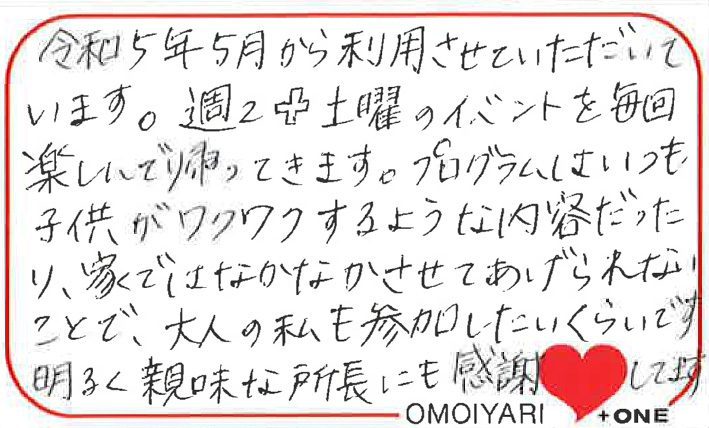 令和5年5月から利用させていただいて
います。週2✚土曜のイベントを毎回
楽しんで帰ってきます。プログラムはいつも
子供がワクワクするような内容だった
り、家ではなかなかさせてあげられない
ことで、大人の私も参加したいくらいです
明るく親味な所長にも感謝してます
OMOIYARI +ONE